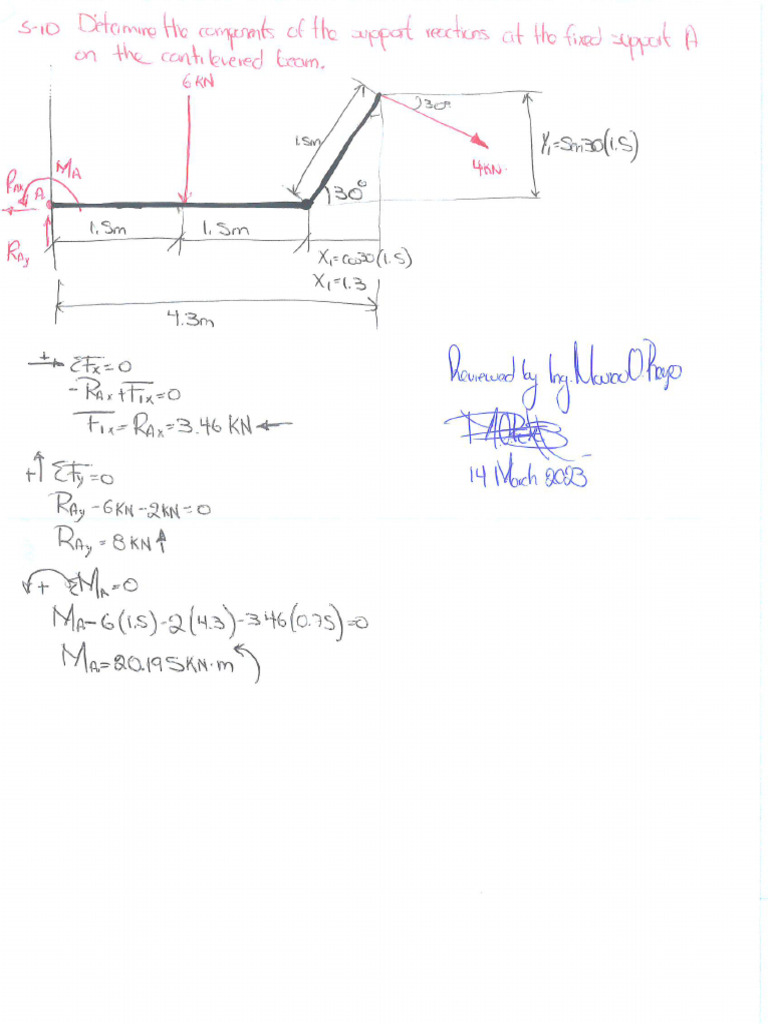 5-10 Determine the components of the support reactions at the fixed support A
on the cantilevered beam.
6KN
30°
1.5m
Y₁=Sin30(1.5)
4KN.
MA
RAx
A
30°
1.5m
1.5m
RAy
X₁=cos30(1.5)
X₁=1.3
4.3m
+→ ΣFx=0
-RAx+F1x=0
F1x=RAx=3.46 KN←
+↑ ΣFy=0
RAy-6KN-2KN=0
RAy=8KN↑
+ ΣMA=0
MA-6(1.5)-2(4.3)-3.46(0.75)=0
MA=20.195KN·m
Reviewed by Ing. Marco O. Rayo
14 March 2023